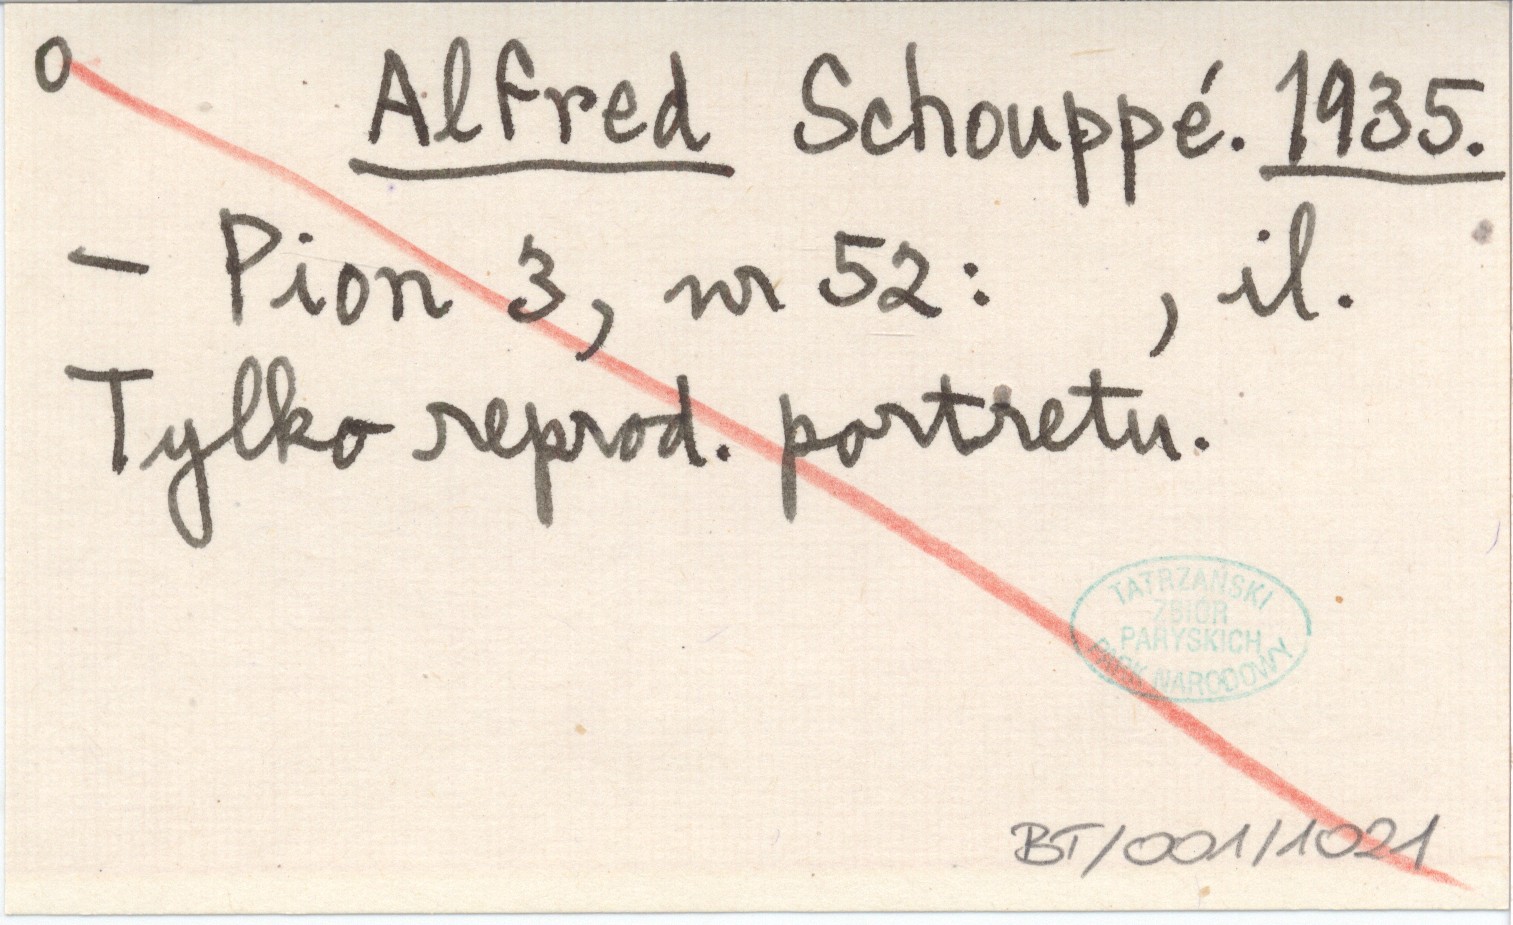 o Alfred Schouppé. 1935.
– Pion 3, nr 52: , il.
Tylko reprod. portretu.
TATRZAŃSKI
ZBIÓR
PARYSKICH
PARK NARODOWY
BT/001/1021